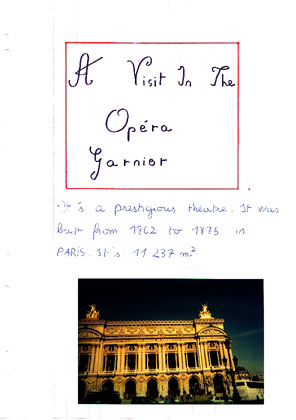 A Visit In The
Opéra
Garnier
It's a prestigious theatre. It was
built from 1862 to 1875 in
PARIS. It's 11 237 m²